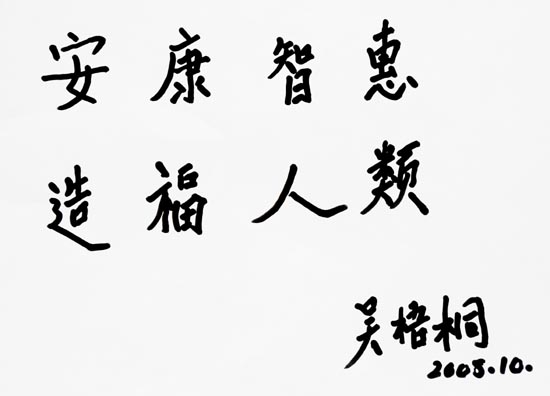 安康智惠
造福人類
吴梧桐
2008.10.